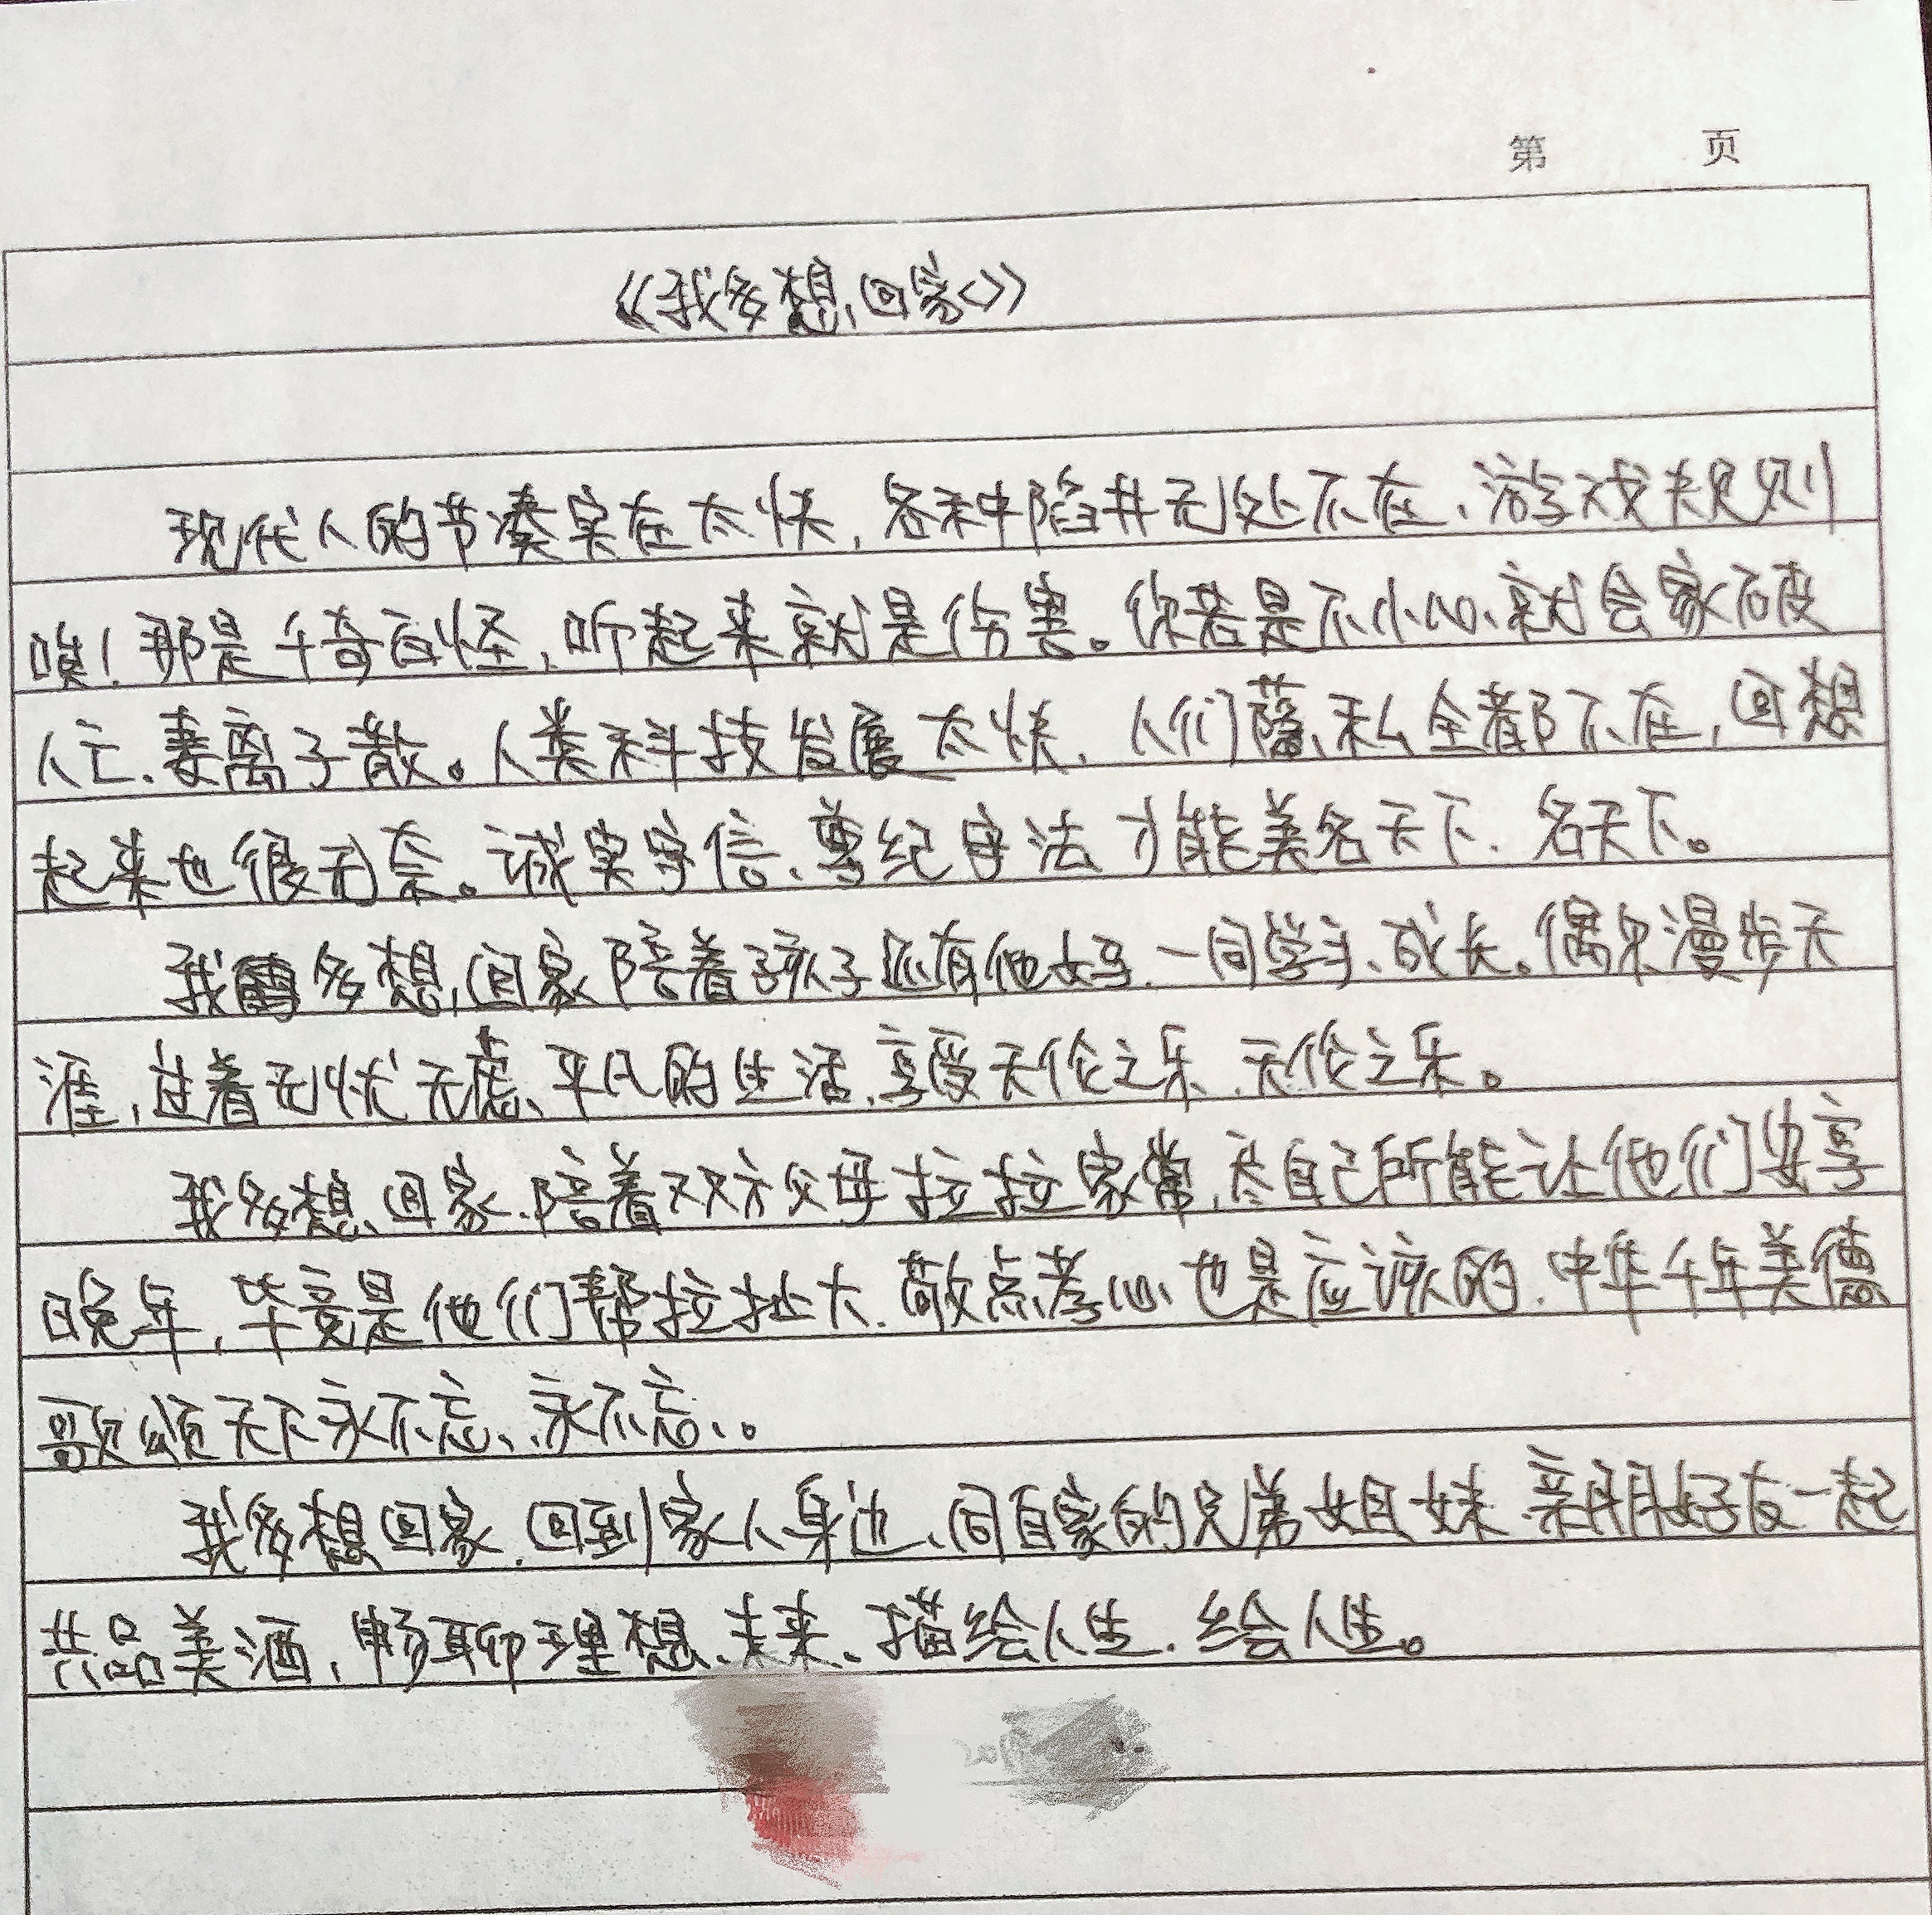 第 页
《我多想回家》
现代人的节凑实在太快，各种陷井无处不在、游戏规则
唉！那是千奇百怪，听起来就是伤害。你若是不小心、就会家破
人亡、妻离子散。人类科技发展太快、人们隐私全都不在，回想
起来也很无奈。诚实守信、尊纪守法才能美名天下、名天下。
我多想回家陪着孩子还有他妈、一同学习、成长。偶尔漫步天
涯，过着无忧无虑、平凡的生活、享受天伦之乐、天伦之乐。
我多想回家、陪着双方父母拉拉家常，尽自己所能让他们安享
晚年，毕竟是他们帮拉扯大、敬点孝心也是应该的、中华千年美德
歌颂天下永不忘、永不忘、。
我多想回家、回到家人身边、同自家的兄弟姐妹、亲朋好友一起
共品美酒，畅聊理想、未来、描绘人生、绘人生。